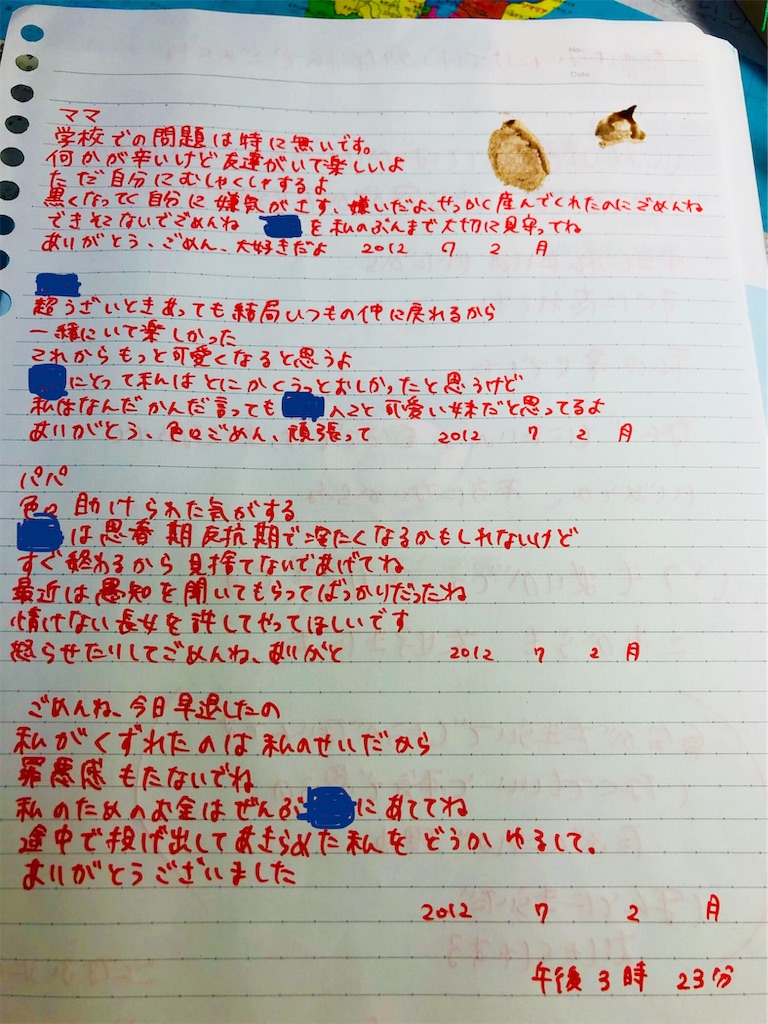 ママ
学校での問題は特に無いです。
何かが辛いけど友達がいて楽しいよ
ただ自分にむしゃくしゃするよ
黒くなってく自分に嫌気がさす、嫌いだよ、せっかく産んでくれたのにごめんね
できそこないでごめんね を私のぶんまで大切に見守ってね
ありがとう、ごめん、大好きだよ 2012 7 2 月
超うざいときあっても結局いつもの仲に戻れるから
一緒にいて楽しかった
これからもっと可愛くなると思うよ
にとって私はとにかくうっとおしかったと思うけど
私はなんだかんだ言っても のこと可愛い妹だと思ってるよ
ありがとう、色々ごめん、頑張って 2012 7 2 月
パパ
色々助けられた気がする
は思春期反抗期で冷たくなるかもしれないけど
すぐ終わるから見捨てないであげてね
最近は愚知を聞いてもらってばっかりだったね
情けない長女を許してやってほしいです
怒らせたりしてごめんね、ありがと 2012 7 2 月
ごめんね、今日早退したの
私がくずれたのは私のせいだから
罪悪感もたないでね
私のためのお金はぜんぶ にあててね
途中で投げ出してあきらめた私をどうかゆるして。
ありがとうございました
2012 7 2 月
午後3時 23分